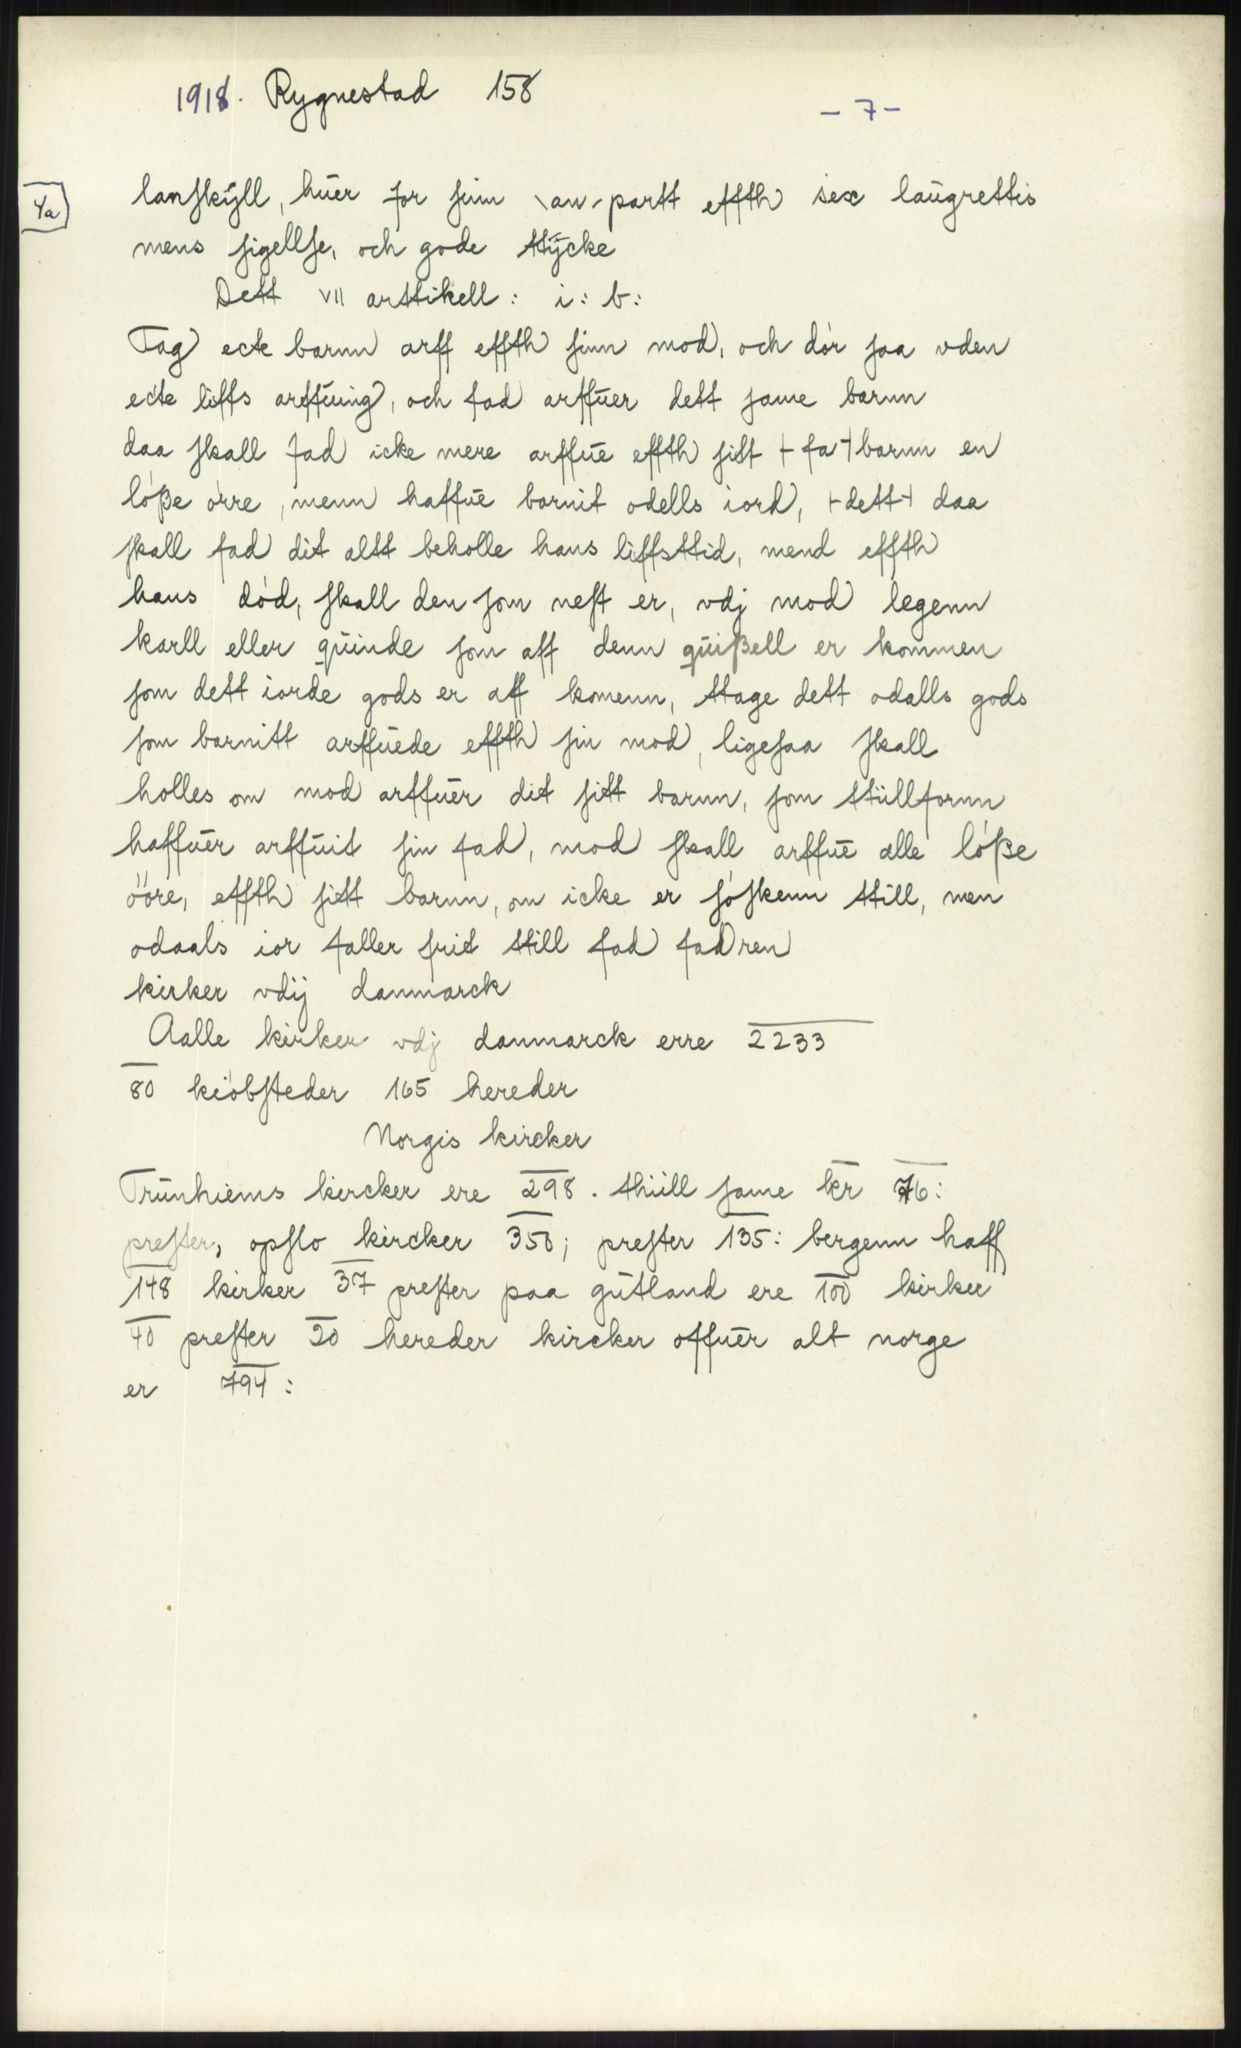 1918. Rygnestad 158
- 7 -
4a
lanſkÿll, hŭer for ſinn \an/partt effth sex laŭgrettis
mens ſigellſe, och gode ttÿcke
Dett VII arttikell: i: b:
Tag ecte barnn arff effth ſinn mod, och dör ſaa vden
ecte liffs arffŭing, och fad arffŭer dett ſame barnn
daa ſkall fad icke mere arffŭe effth ſitt ⊢fa⊣ barnn en
löße örre, menn haffŭe barnit odells iord, ⊢dett⊣ daa
ſkall fad dit altt beholle hans liffsttid, mend effth
hans död, ſkall den ſom neſt er, vdj mod legenn
karll eller qŭinde ſom aff denn qŭißell er kommen
ſom dett iorde gods er aff komenn, ttage dett odalls gods
ſom barnitt arffŭede effth ſin mod, ligeſaa ſkall
holles om mod arffŭer dit ſitt barnn, ſom ttillfornn
haffŭer arffŭit ſin fad, mod ſkall arffŭe alle löße
ööre, effth ſitt barnn, om icke er ſöſkenn ttill, men
odaals ior faller frit ttill fad fadren
kirker vdij danmarck
Aalle kirker vdj danmarck erre 2233
80 kiöbſteder 165 hereder
Norgis kircker
Trŭnhiems kircker ere 298. thiill ſame kr 76:
preſter, opſlo kircker 350; preſter 135: bergenn haff
148 kirker 37 preſter paa gŭtland ere 100 kirker
40 preſter 20 hereder kircker offŭer alt norge
er 794: